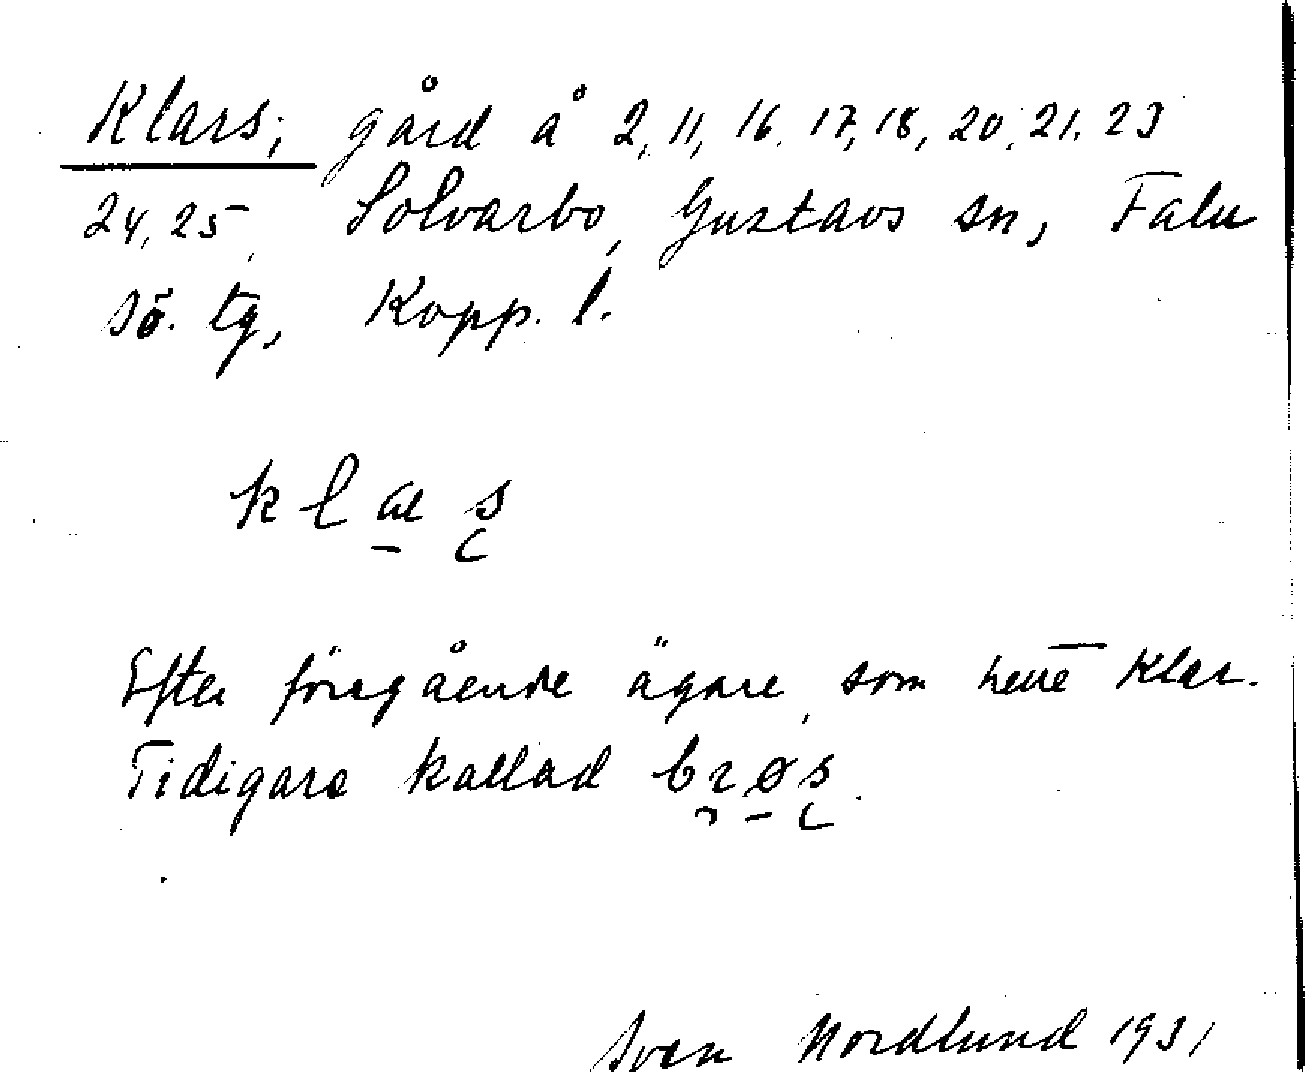 Klars; gård å 2, 11, 16, 17, 18, 20, 21, 23
24, 25, Solvarbo, Gustavs sn, Falu
sö. tg, Kopp. l.
k l æ s
Efter föregående ägare, som hette Klar.
Tidigare kallad b r ø s.
Sven Nordlund 1931